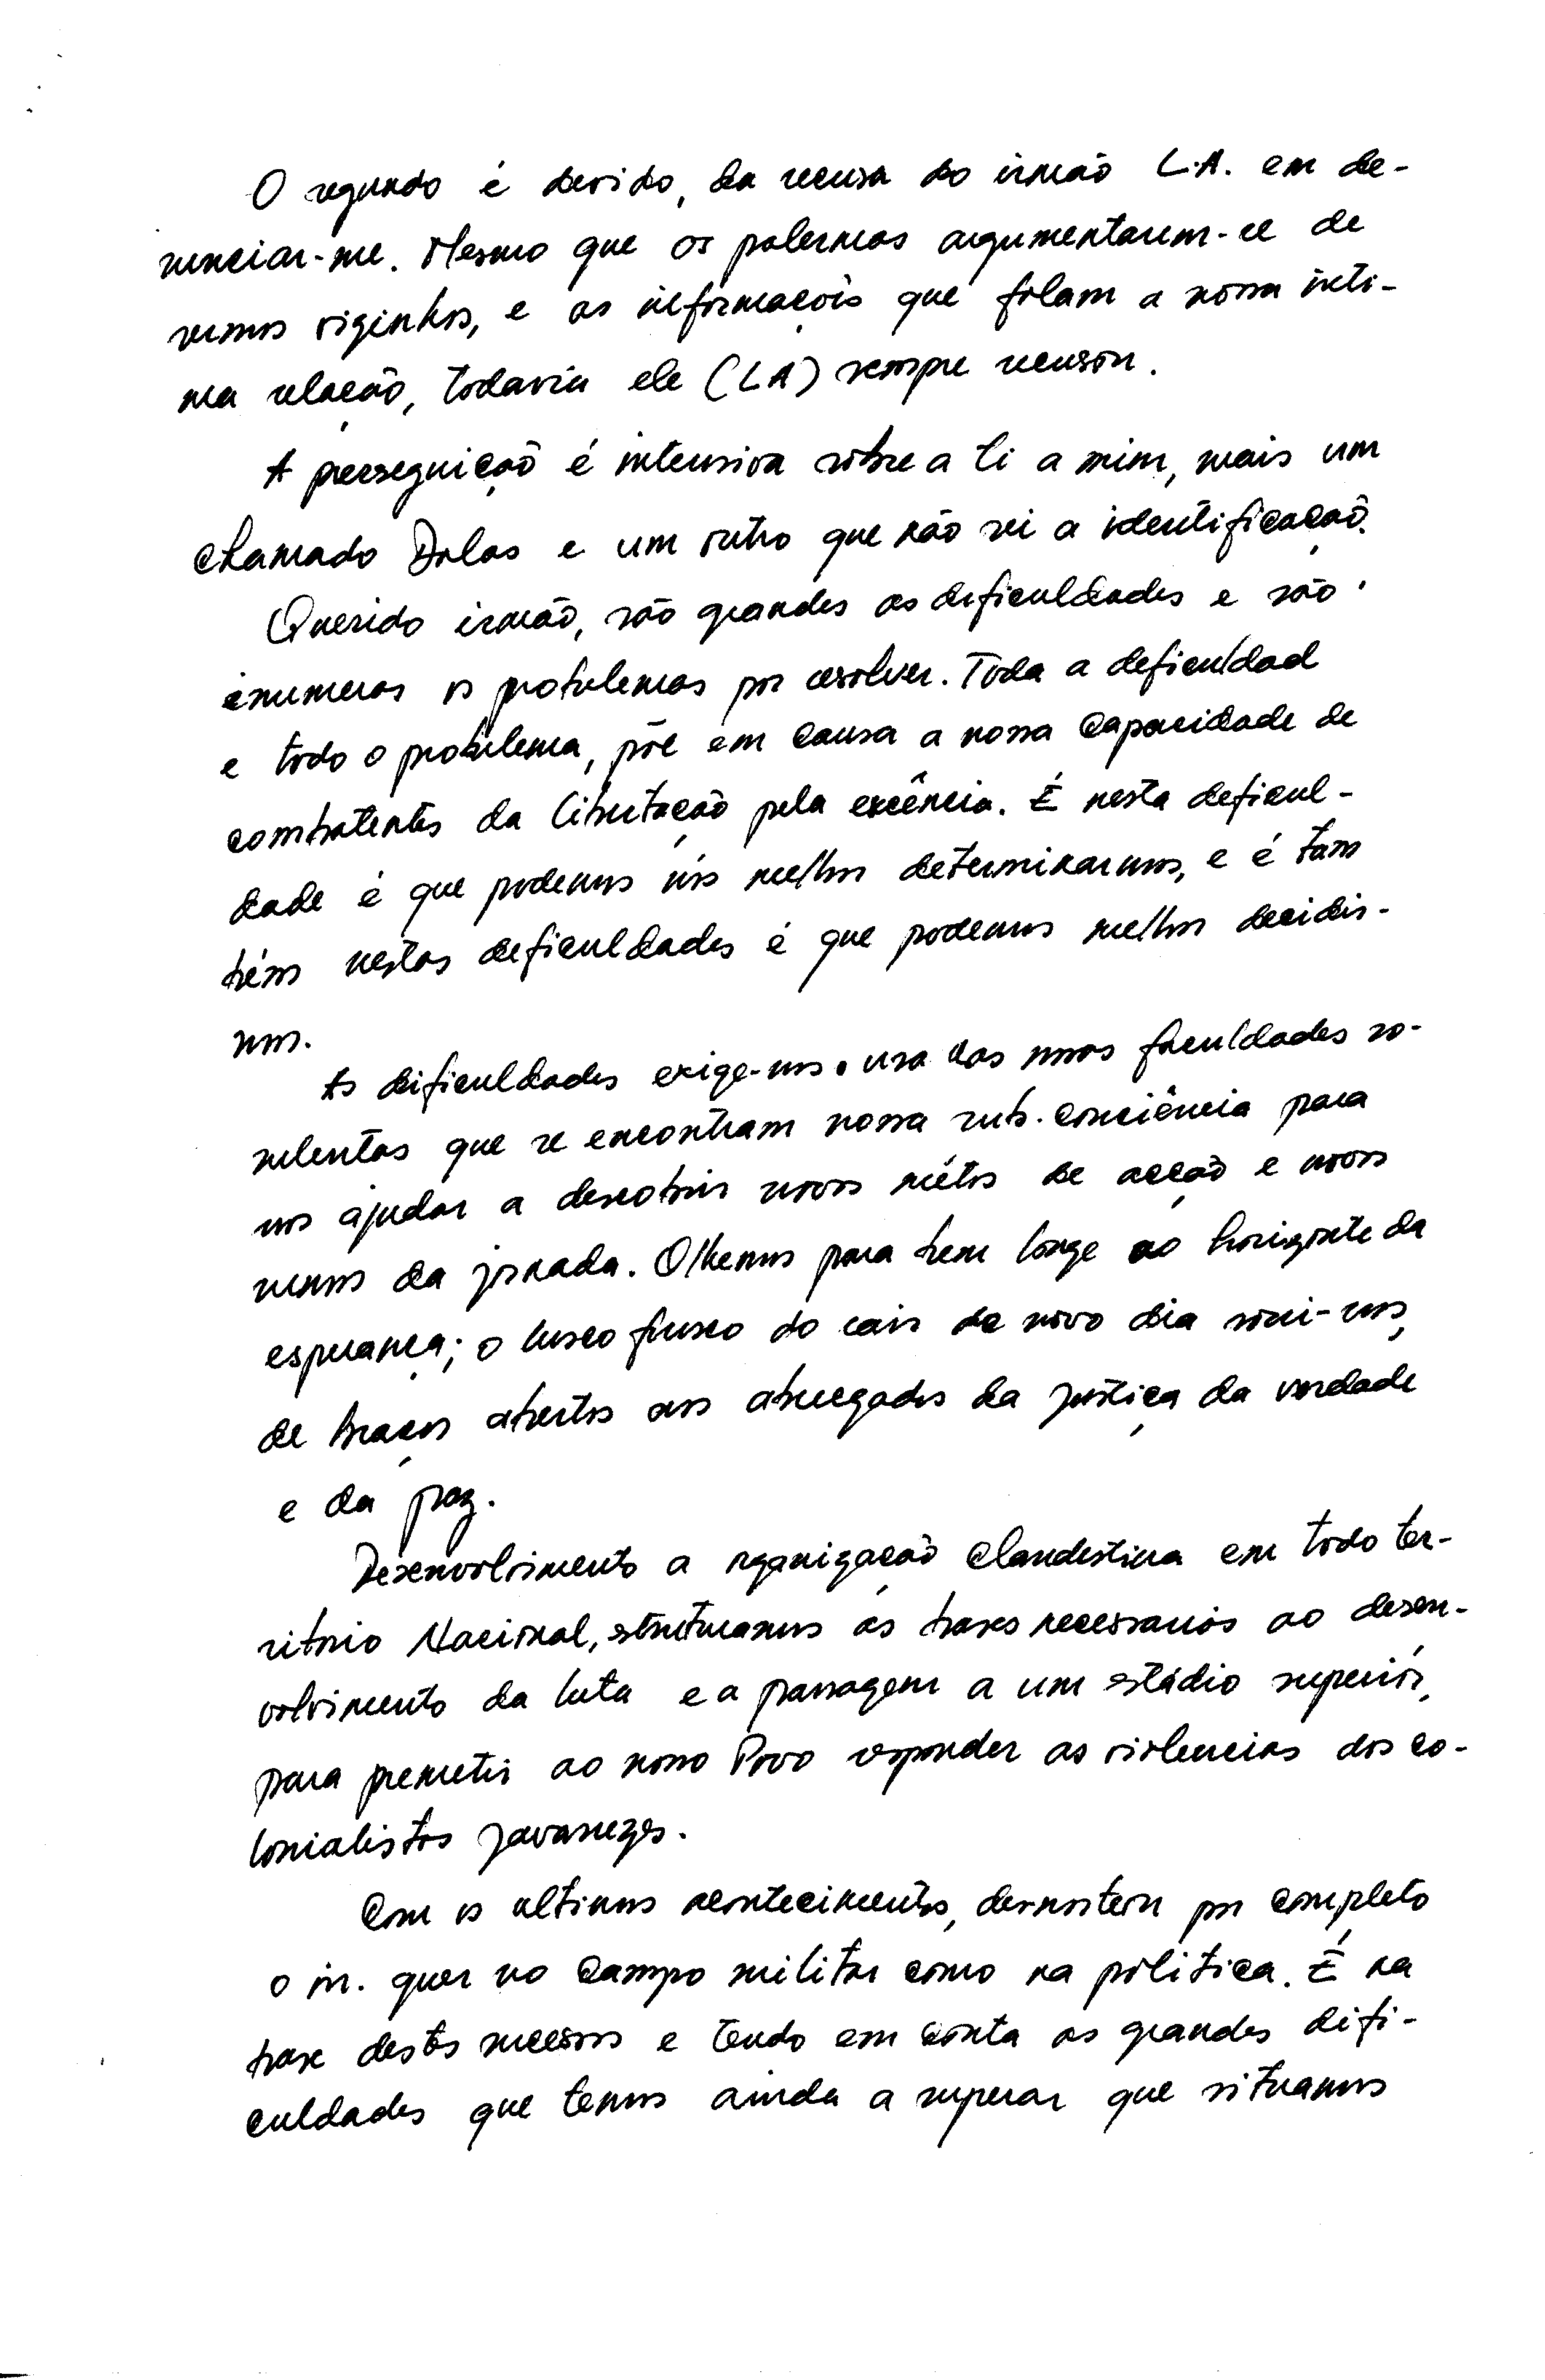 O segundo é devido, da recusa do irmão L.A. em de-
nunciar-me. Mesmo que os palermas argumentarem-se de
sermos viginhos, e as informaçois que falam a nossa inti-
ma relação, todavia ele (LA) sempre recusou.
A perseguição é intensiva sôbre a ti a mim, mais um
chamado Dalas e um outro que não sei a identificação.
Querido irmão, são grandes as dificuldades e são
enumeras os problemas por resolver. Toda a deficuldad
e todo o problema, põe em causa a nossa capacidade de
combatentes da libertação pela excência. É nesta deficul-
dade é que podemos nós melhor determinarmos, e é tam
bém nestas deficuldades é que podemos melhor decidir-
mos.
As dificuldades exige-nos o uso das novas faculdades so-
nulentas que se encontram nossa sub-conciência para
nos ajudar a descobrir novos métos de acção e novos
rumos da jornada. Olhemos para bem longe ao horizonte da
esperança; o lusco fusco do cair de novo dia sorri-nos,
de braços abertos aos abnegados da justiça da verdade
e da paz.
Desenvolvimento a organização clandestina em todo ter-
ritorio Nacional, estruturamos as bases necessarias ao desen-
volvimento da luta e a passagem a um estádio superiór,
para premetir ao nosso Povo responder as violencias dos co-
lonialistas javanezes.
Com os ultimos acontecimentos, derrotou por completo
o in. quer no campo militar como na politica. É na
base destes sucessos e tendo em conta as grandes difi-
culdades que temos ainda a superar que situamos